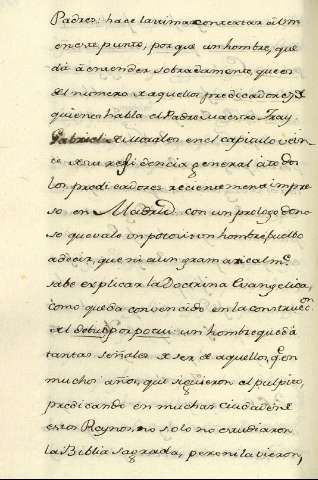 Padres: hace lastima contextar à Um
en este punto, porque un hombre, que
dà à entender sobradamente, que es
del numero de aquellos predicadores, de
quienes habla el Padre Maestro Fray
Gabriel de Morales en el capitulo vein-
te de su residencia general à todos
los predicadores recienmente impre-
so en Madrid con un prologo dono-
so que vale un potosi: un hombre, buelbo
à decir, que ni aun gramaticalmte
sabe explicar la Doctrina Evangelica,
como queda convencido en la construccon
del debuerpor pocui: un hombre que dà
tantas señales de ser de aquellos, qe en
muchos años, que siguieron al pulpito,
predicando en muchas ciudades de
estos Reynos, no solo no estudiaron
la Biblia sagrada, pero ni la vieron,